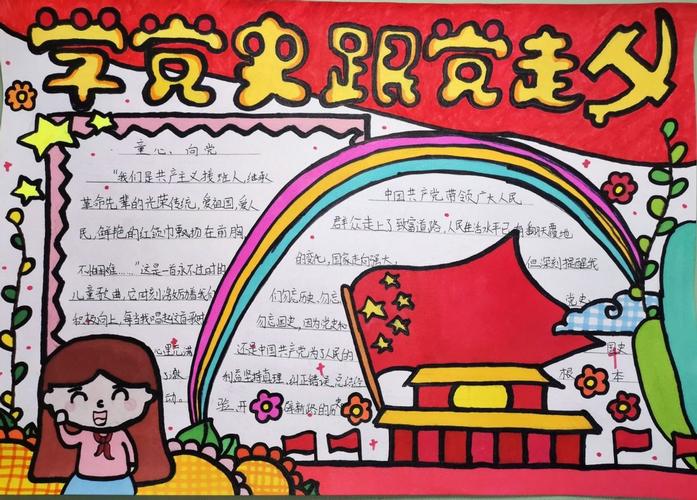 学党史跟党走
童心向党
"我们是共产主义接班人,继承
革命先辈的光荣传统,爱祖国,爱人
民,鲜艳的红领巾飘扬在前胸
不怕困难……"这是一首永不过时的
儿童歌曲,它时刻激励着我们
积极向上,每当我唱起这首歌时
心里充满
了激
动。
中国共产党带领广大人民
群众走上了致富道路,人民生活水平已有翻天覆地
的变化,国家走向强大,但深刻提醒我
们勿忘历史,勿忘党史
勿忘国史,因为党史和国史
还是中国共产党为了人民的根本
利益坚持真理,纠正错误,总结经
验,开创新路的历史